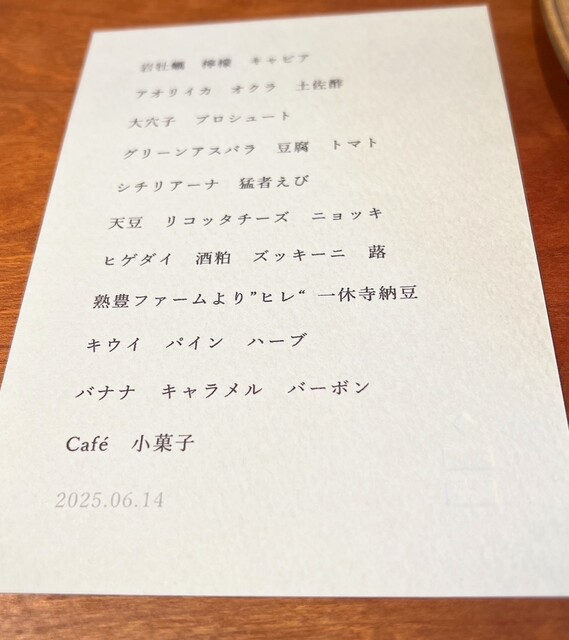 岩牡蠣　檸檬　キャビア
アオリイカ　オクラ　土佐酢
大穴子　プロシュート
グリーンアスパラ　豆腐　トマト
シチリアーナ　猛者えび
天豆　リコッタチーズ　ニョッキ
ヒゲダイ　酒粕　ズッキーニ　蕗
熟豊ファームより”ヒレ“ 一休寺納豆
キウイ　パイン　ハーブ
バナナ　キャラメル　バーボン
Café　小菓子
2025.06.14